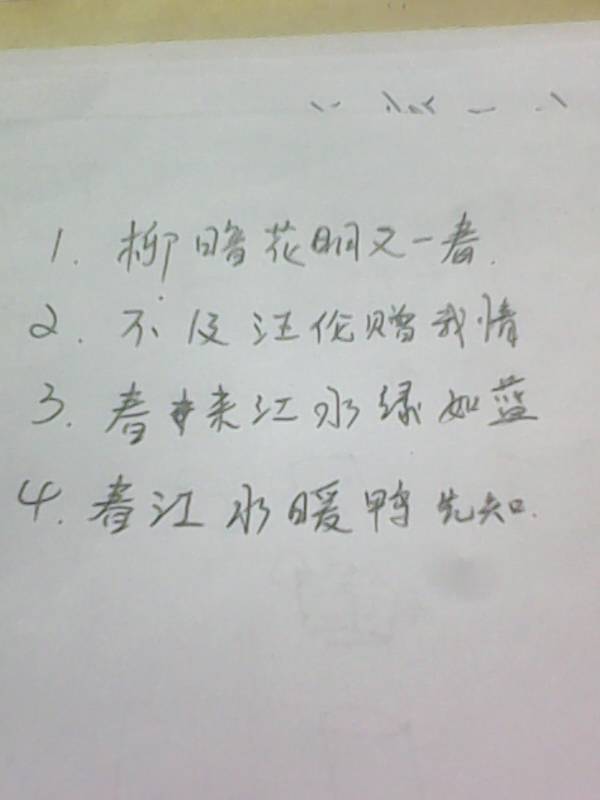 1. 柳暗花明又一春.
2. 不及汪伦赠我情
3. 春来江水绿如蓝
4. 春江水暖鸭先知.